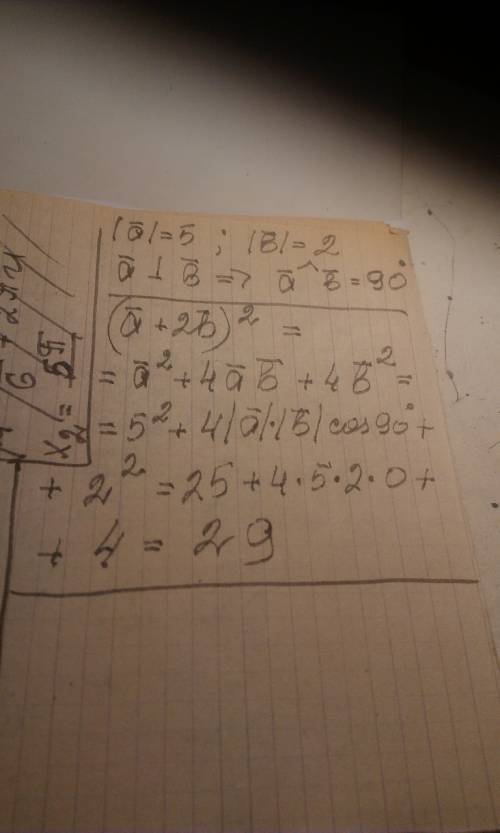 |a̅| = 5 ; |b̅| = 2
a̅ ⊥ b̅ => a̅ ^ b̅ = 90°
(a̅ + 2b̅)² =
= a̅² + 4a̅b̅ + 4b̅² =
= 5² + 4|a̅|·|b̅| cos90° +
+ 2² = 25 + 4·5·2·0 +
+ 4 = 29
x₂ = 5π